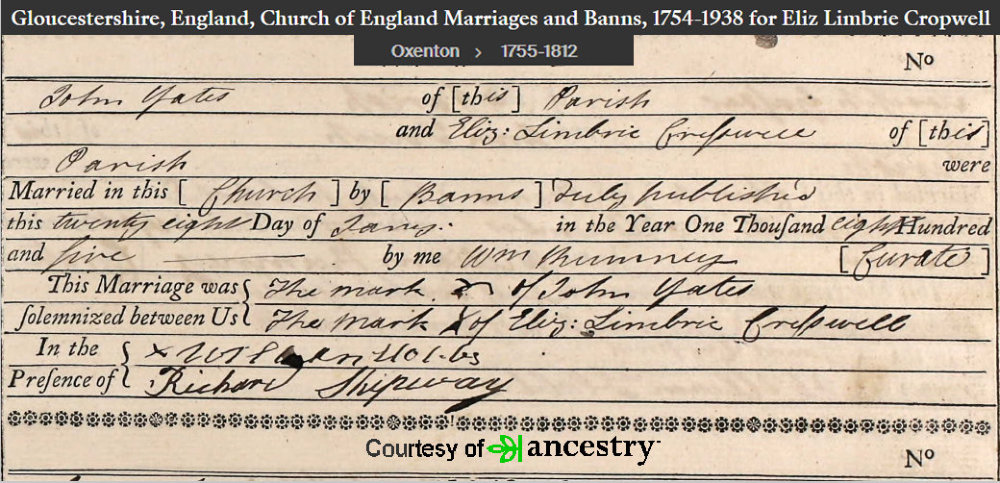 Gloucestershire, England, Church of England Marriages and Banns, 1754-1938 for Eliz Limbrie Cropwell
Oxenton > 1755-1812
No
John Yates of [this] Parish
and Eliz: Limbric Creſswell of [this]
Parish were
Married in this [Church] by [Banns] Duly publish'd
this twenty eight Day of Jany: in the Year One Thouſand eight Hundred
and five by me Wm Rumney [Curate]
This Marriage was The mark of John Yates
ſolemnized between Us The mark X of Eliz: Limbric Creſswell
In the X
Preſence of Richard Shipway
Courtesy of ancestry
No